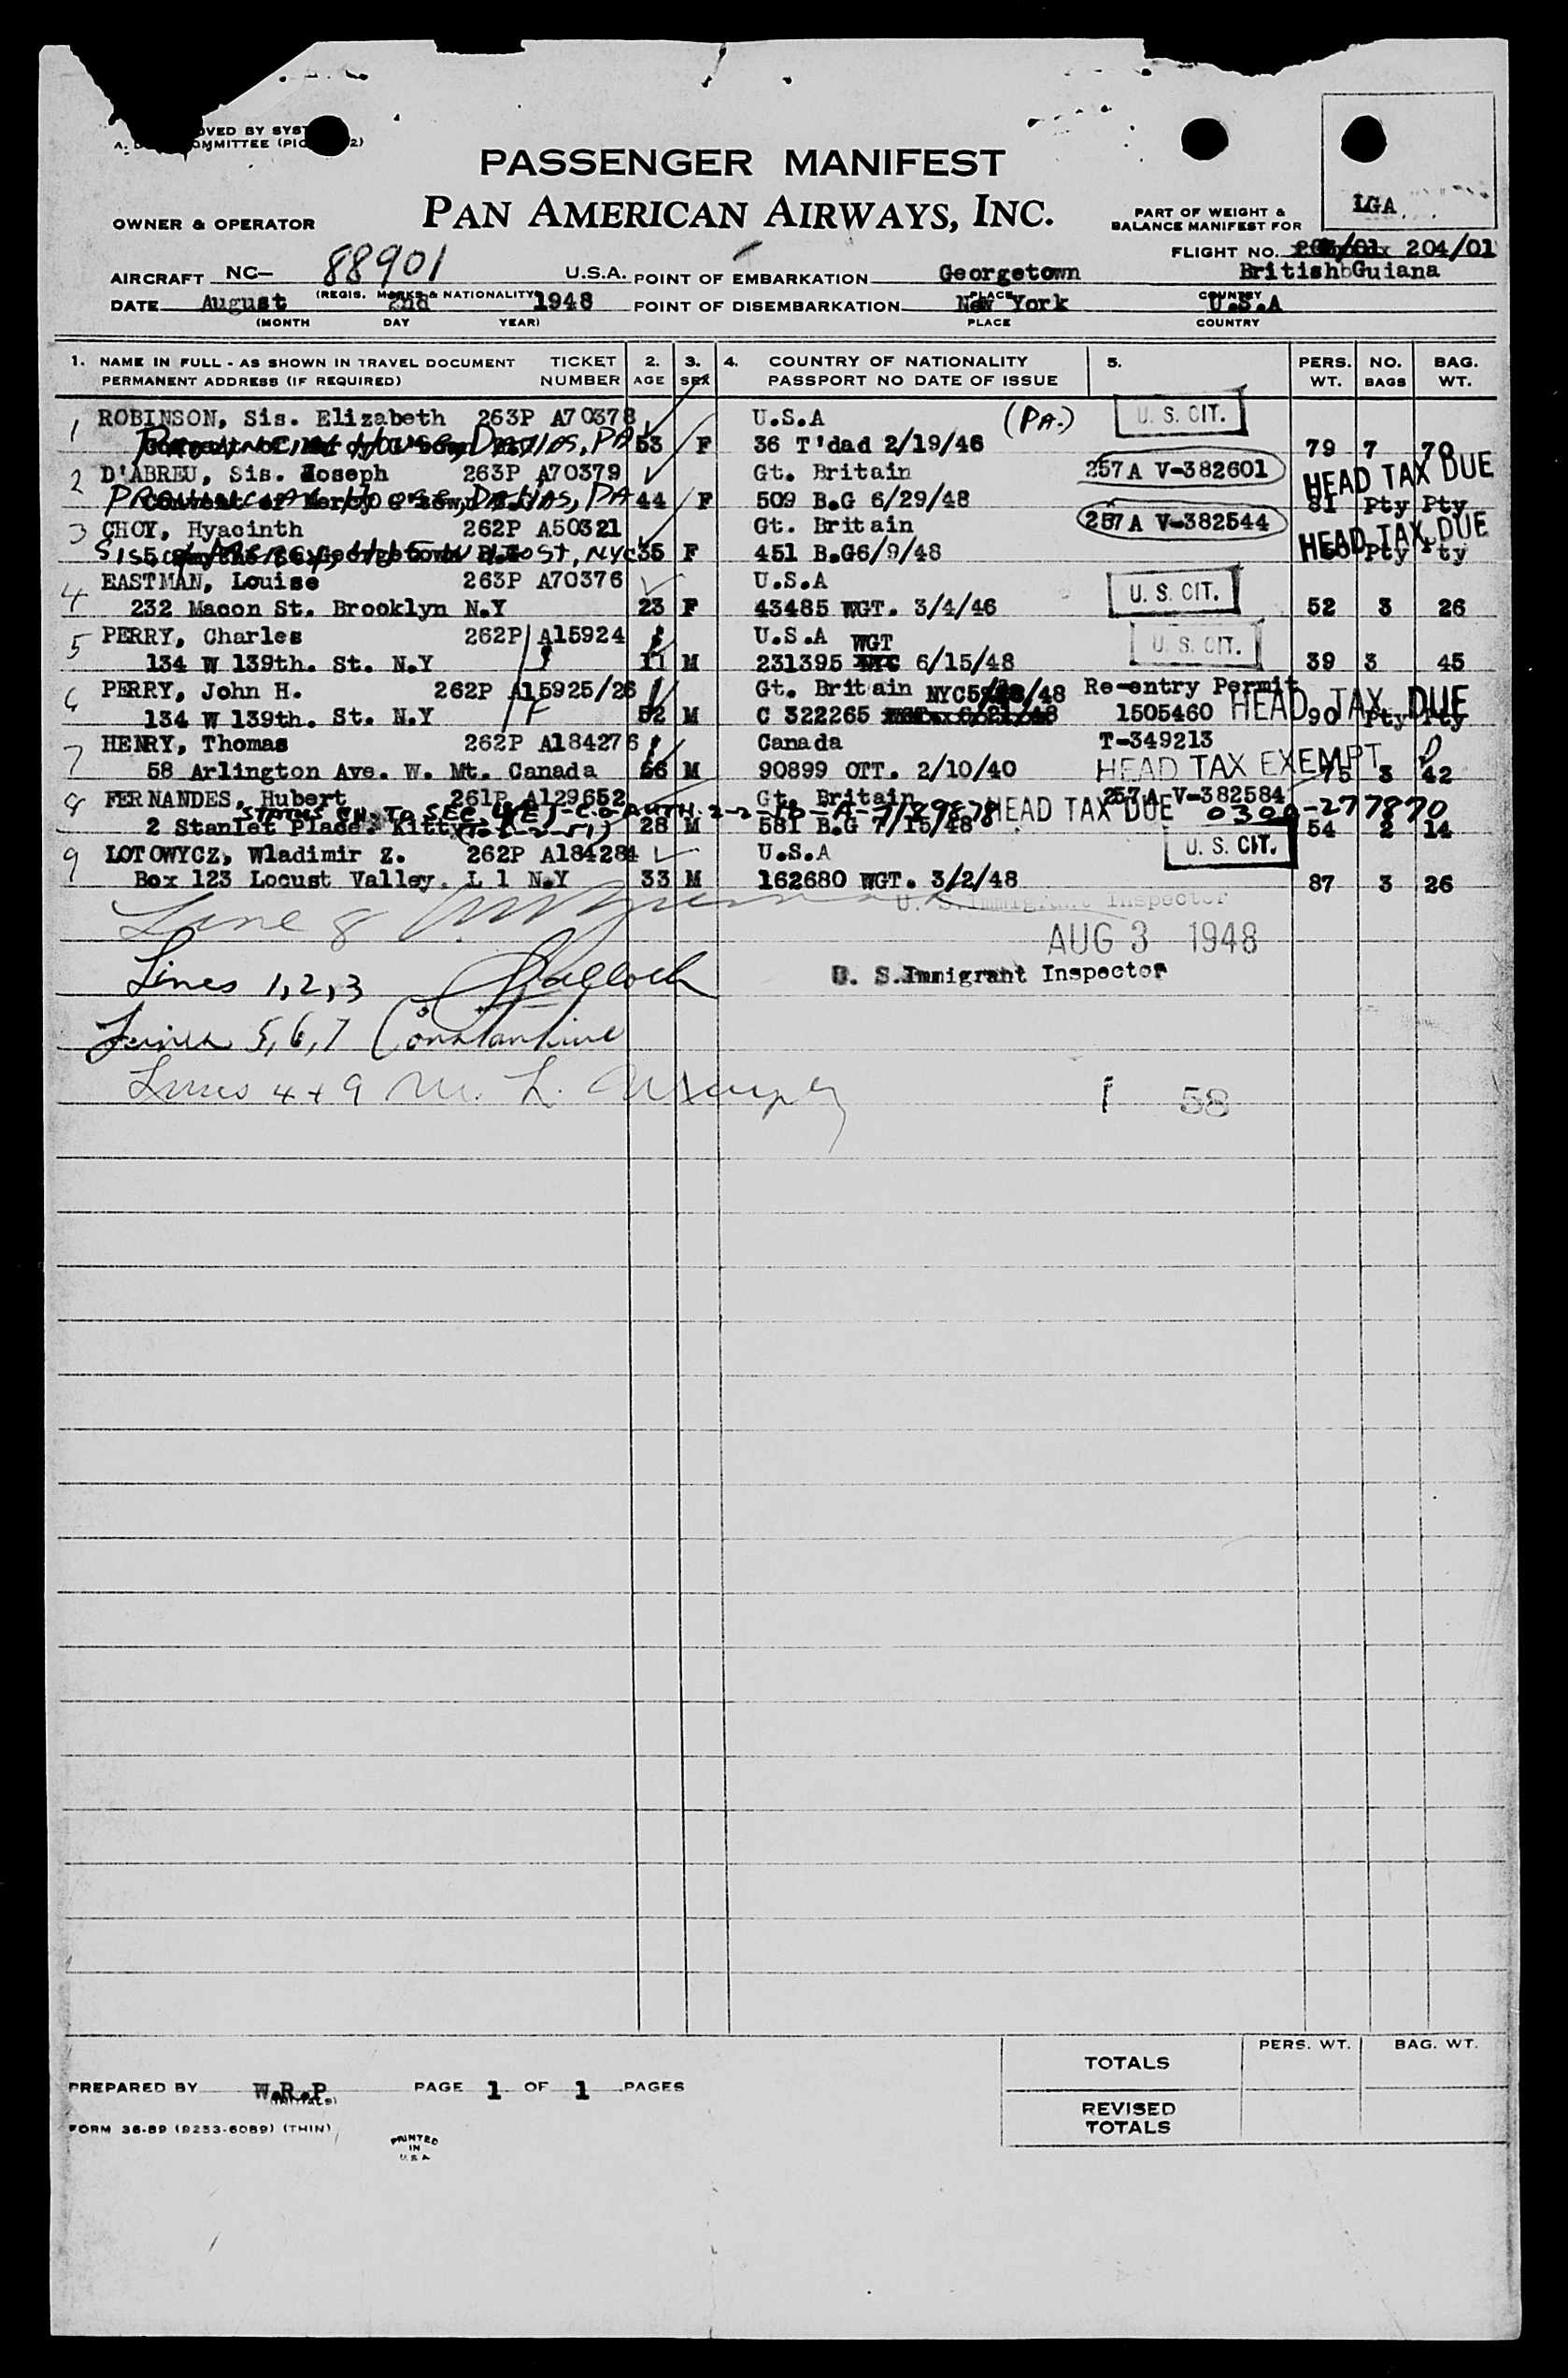 OVED BY SYS
OMMITTEE (PIC 2)
PASSENGER MANIFEST
PAN AMERICAN AIRWAYS, INC.
LGA
OWNER & OPERATOR
PART OF WEIGHT &
BALANCE MANIFEST FOR
FLIGHT NO. 204/01
AIRCRAFT NC- 88901 U.S.A. POINT OF EMBARKATION Georgetown British Guiana
(REGIS. MARKS & NATIONALITY) PLACE COUNTRY
DATE August 2nd 1948 POINT OF DISEMBARKATION New York U.S.A
(MONTH DAY YEAR) PLACE COUNTRY
1. NAME IN FULL - AS SHOWN IN TRAVEL DOCUMENT TICKET 2. 3. 4. COUNTRY OF NATIONALITY 5. PERS. NO. BAG.
PERMANENT ADDRESS (IF REQUIRED) NUMBER AGE SEX PASSPORT NO DATE OF ISSUE WT. BAGS WT.
1 ROBINSON, Sis. Elizabeth 263P A70378 U.S.A (PA.) U. S. CIT.
DALLAS, PA 53 F 36 T'dad 2/19/46 79 7 70
2 D'ABREU, Sis. Joseph 263P A70379 Gt. Britain 257A V-382601 HEAD TAX DUE
DALLAS, PA 44 F 509 B.G 6/29/48 81 Pty Pty
3 CHOY, Hyacinth 262P A50321 Gt. Britain 257A V-382544 HEAD TAX DUE
ST, NYC 35 F 451 B.G6/9/48 Pty Pty
4 EASTMAN, Louise 263P A70376 U.S.A U. S. CIT.
232 Macon St. Brooklyn N.Y 23 F 43485 WGT. 3/4/46 52 3 26
5 PERRY, Charles 262P A15924 U.S.A WGT U. S. CIT.
134 W 139th. St. N.Y 11 M 231395 6/15/48 39 3 45
6 PERRY, John H. 262P A15925/26 Gt. Britain Re-entry Permit
134 W 139th. St. N.Y 52 M C 322265 1505460 HEAD TAX DUE 90 Pty Pty
7 HENRY, Thomas 262P A184276 Canada T-349213
58 Arlington Ave. W. Mt. Canada 56 M 90899 OTT. 2/10/40 HEAD TAX EXEMPT 75 3 42
8 FERNANDES, Hubert 261P A129652 Gt. Britain 257A V-382584
STATUS CH. TO SEC. 4(E)-C.O. AUTH. HEAD TAX DUE 0300-277870
2 Stanlet Place. Kitty 28 M 581 B.G 7/15/48 54 2 14
9 LOTOWYCZ, Wladimir Z. 262P A184284 U.S.A U. S. CIT.
Box 123 Locust Valley. L 1 N.Y 33 M 162680 WGT. 3/2/48 87 3 26
U. S. Immigrant Inspector
Line 8
AUG 3 1948
Lines 1,2,3
U. S. Immigrant Inspector
Lines 5,6,7 Constantine
Lines 4 + 9 M. L.
58
PERS. WT. BAG. WT.
TOTALS
PREPARED BY W.R.P. PAGE 1 OF 1 PAGES
(INITIALS)
REVISED
TOTALS
FORM 36-89 (9253-6089) (THIN)
PRINTED
IN
U.S.A